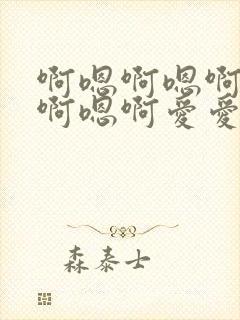 啊嗯啊嗯啊
啊嗯啊爱爱
森泰士